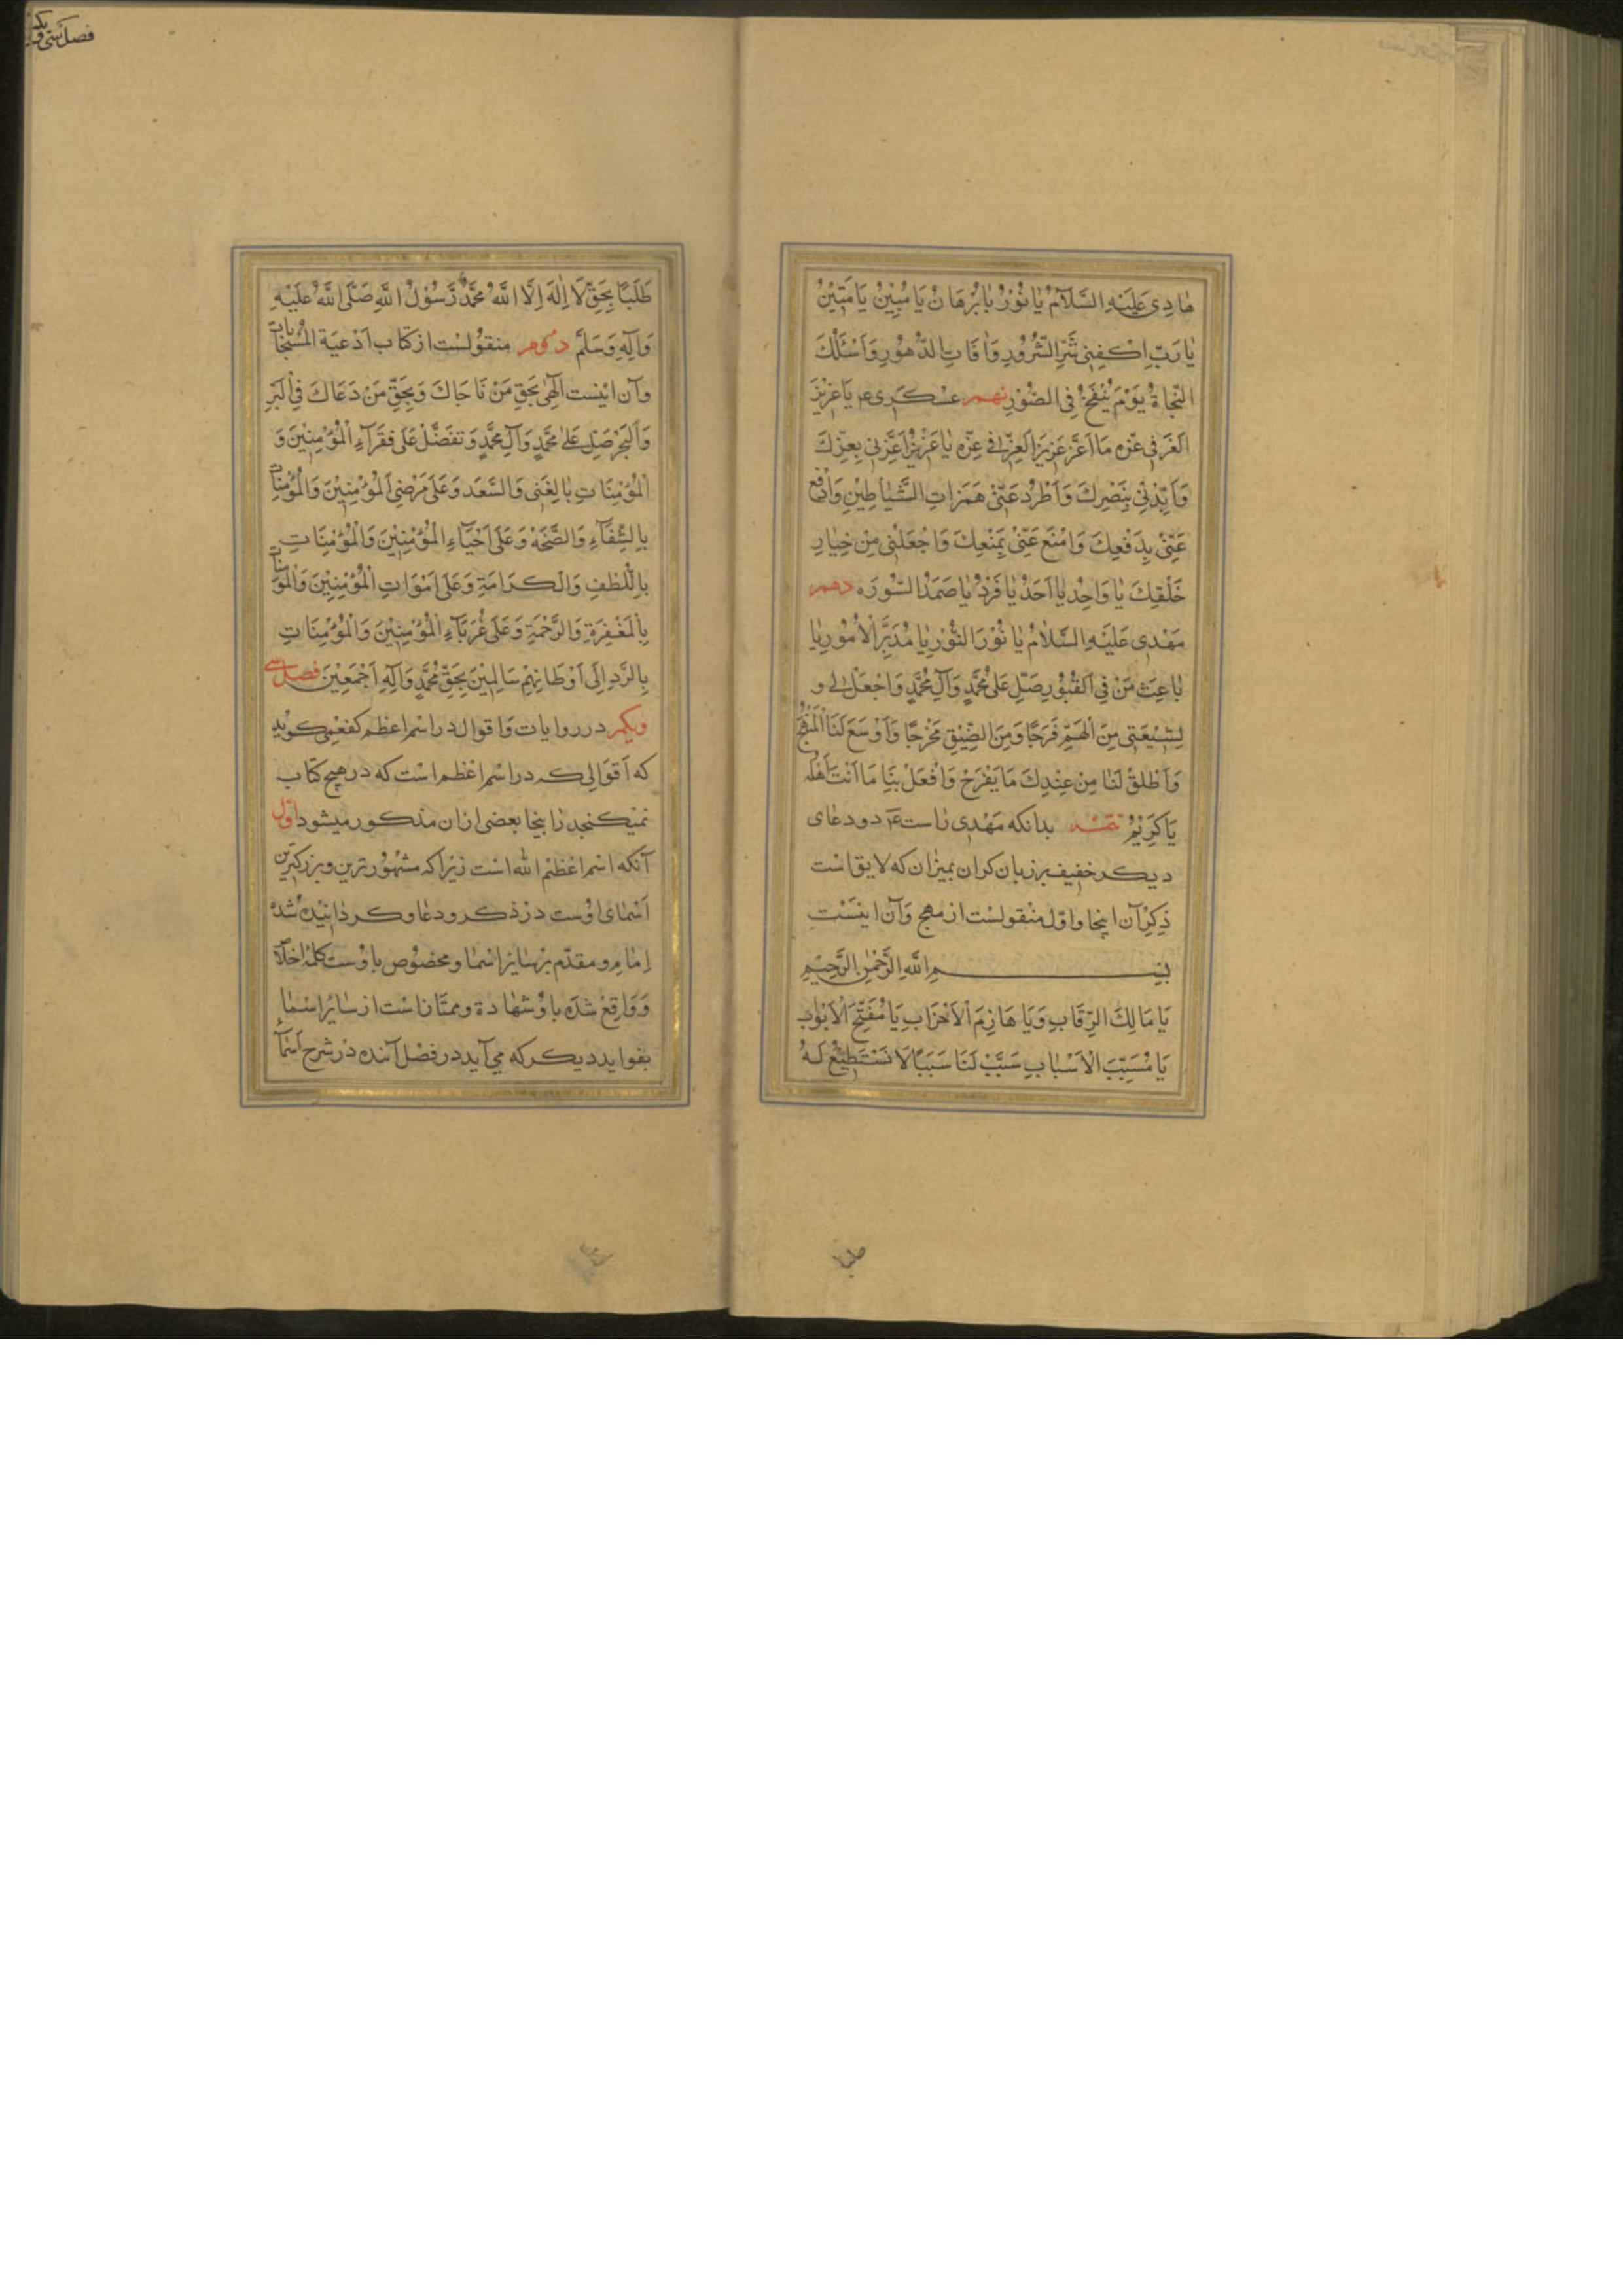 هٰادِی عَلَیْهِ السَّلَامُ یٰا نُوْرُ یٰا بُرْهَانُ یَا مُبِیْنُ یَا مَتِیْنُ
یٰا رَبِّ اِکْفِنِی شَرَّ الشُّرُوْرِ وَاٰفَاتِ الدُّهُوْرِ وَاَسْئَلُكَ
النَّجَاةَ یَوْمَ یُنْفَخُ فِی الصُّوْرِ نهم عسکری ع یَا عَزِیْزَ
الْعَزِّ فِی عِزِّه مَا اَعَزَّ عَزِیْزَ الْعِزِّ فِی عِزِّه یٰا عَزِیْزُ اَعِزَّنِی بِعِزِّكَ
وَاَیِّدْنِی بِنَصْرِكَ وَاَطْرُدْ عَنِّیْ هَمَزَاتِ الشَّیَاطِیْنِ وَادْفَعْ
عَنِّیْ بِدَفْعِكَ وَامْنَعْ عَنِّیْ بِمَنْعِكَ وَاجْعَلْنِی مِنْ خِیَارِ
خَلْقِكَ یٰا وَاحِدُ یٰا اَحَدُ یٰا فَرْدُ یٰا صَمَدُ السّوره دهم
مَهْدِی عَلَیْهِ السَّلَامُ یٰا نُوْرَ النُّوْرِ یٰا مُدَبِّرَ الْاُمُوْرِ یٰا
بٰاعِثَ مَنْ فِی الْقُبُوْرِ صَلِّ عَلیٰ مُحَمَّدٍ وَآلِ مُحَمَّدٍ وَاجْعَلْ لِی وَ
لِشِیْعَتِی مِنَ الْهَمِّ فَرَجًا وَمِنَ الضِّیْقِ مَخْرَجًا وَاَوْسَعْ لَنَا الْمَنْهَجَ
وَاَطْلِقْ لَنٰا مِنْ عِنْدِكَ مَا یَفْرَحُ وَافْعَلْ بِنَا مَا اَنْتَ اَهْلُهُ
یَا کَرِیْمُ تتمّه بدانکه مَهْدِی رٰاست ع دو دعٰای
دیکر خفیف بر زبان کران بمیزان که لایق است
ذِکْرِ آن اینجا و اوّل منْقولسْت از مهج وَآن اینَسْت
بِسْمِ اللّٰهِ الرَّحْمٰنِ الرَّحِیْمِ
یَا مَالِكَ الرِّقَابِ وَیَا هَازِمَ الْاَحْزَابِ یَا مُفَتِّحَ الْاَبْوٰابِ
یَا مُسَبِّبَ الْاَسْبٰابِ سَبِّبْ لَنَا سَبَبًا لَا نَسْتَطِیْعُ لَهُ
طلبا
فصل سی و یک
طَلَبًا بِحَقِّ لَا اِلٰهَ اِلَّا اللّٰهُ مُحَمَّدٌ رَسُوْلُ اللّٰهِ صَلَّی اللّٰهُ عَلَیْهِ
وَآلِهِ وَسَلَّمَ دوم منقولسْت از کتاب اَدْعیَة الْمُسْتَجَابَات
وآن اینست اِلٰهِی بِحَقِّ مَنْ نَاجَاكَ وَبِحَقِّ مَنْ دَعَاكَ فِی الْبَرِّ
وَالْبَحْرِ صَلِّ عَلیٰ مُحَمَّدٍ وَآلِ مُحَمَّدٍ وَتَفَضَّلْ عَلَی فُقَرَآءِ الْمُؤْمِنِیْنَ وَ
الْمُؤْمِنَاتِ بٰالْغِنٰی وَالسَّعَد وَعَلَی مَرْضَی الْمُؤْمِنِیْنَ وَالْمُؤْمِنَاتِ
بِالشِّفَآءِ وَالصَّحَّهْ وَعَلَی اَحْیَآءِ الْمُؤْمِنِیْنَ وَالْمُؤْمِنَاتِ
بِاللُّطْفِ وَالْکَرَامَةِ وَعَلَی اَمْوَاتِ الْمُؤْمِنِیْنَ وَالْمُؤْمِنَاتِ
بِالْمَغْفِرَةِ وَالرَّحْمَةِ وَعَلَی غُرَبَآءِ الْمُؤْمِنِیْنَ وَالْمُؤْمِنَاتِ
بِالرَّدِ اِلَی اَوْطَانِهِمْ سَالِمِیْنَ بِحَقِّ مُحَمَّدٍ وَآلِهِ اَجْمَعِیْنَ فصل سی
ویکم در روایات وَاقوال در اسْم اعظم کفعمی کوید
که اَقوالی که در اسْم اعْظم اسْت که در هیچ کتاب
نمیکنجد زاینجا بعضی از ان مذکور میشود اوّل
آنکه اسْم اعْظم الله اسْت زیْرا که مشْهُوْر ترین وبزرکترین
اَسْمٰای اوْست درْ ذکر ودعٰا وکردٰانیْده شده
اِمٰام ومقدّم برْ سٰایرْ اسْمٰا ومخصُوْص باوْست کلمهٔ اخلاص
وَوَاقِعْ شدَه باوْ شهٰادة وممتَاز اسْت از سٰایرْ اسْمٰا
بفواید دیکر که می آید در فصْل آینده درْ شرح اَسْمآ